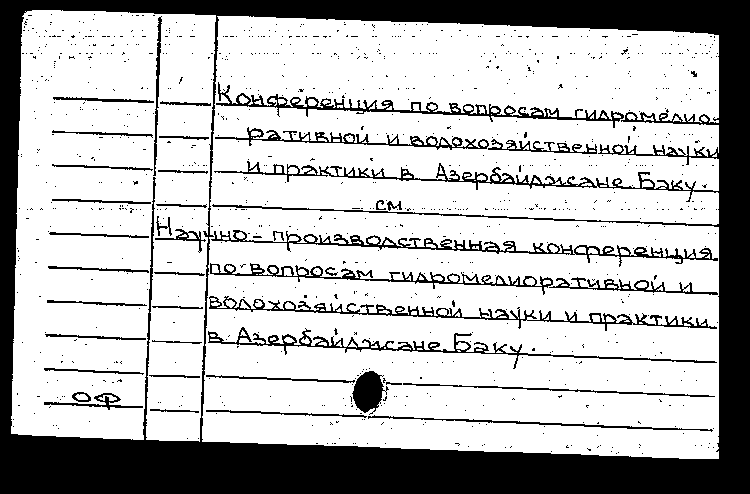 Конференция по вопросам гидромелио-
ративной и водохозяйственной науки
и практики в Азербайджане. Баку.
см.
Научно-производственная конференция
по вопросам гидромелиоративной и
водохозяйственной науки и практики
в Азербайджане. Баку.
ОФ